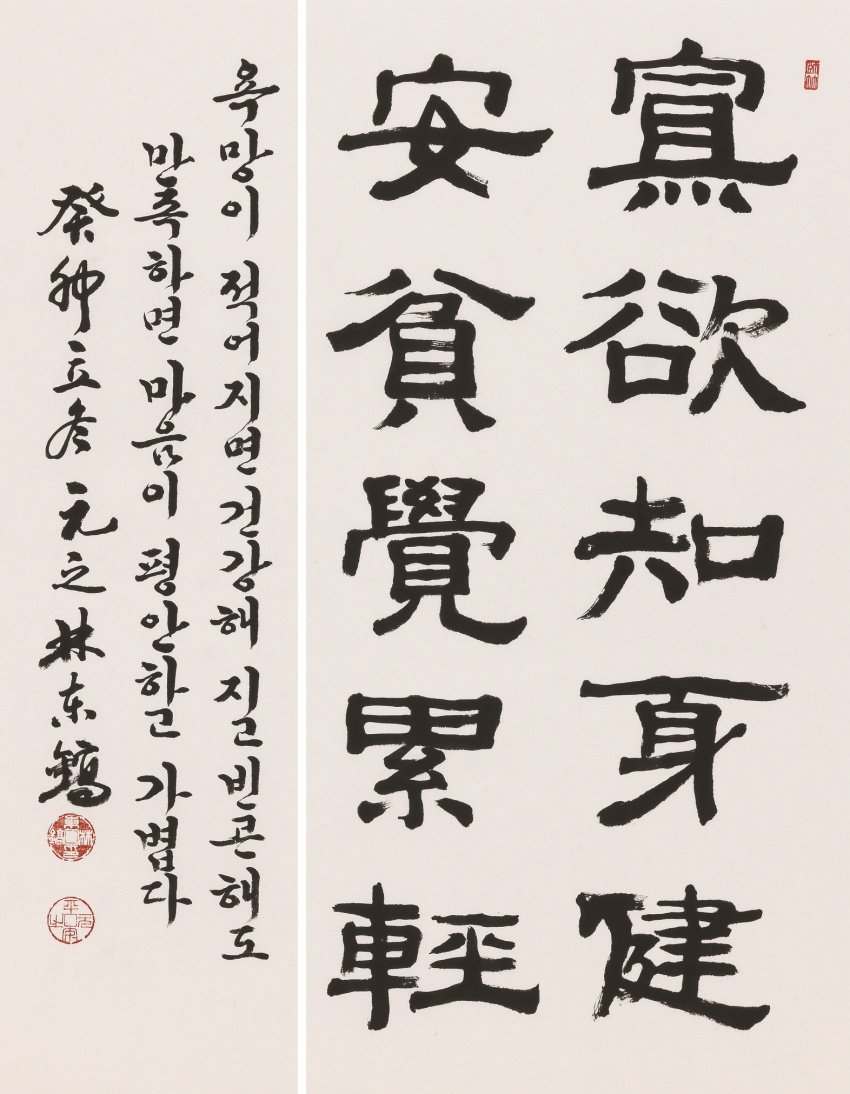 寡欲知身健
安貧覺累輕
욕망이 적어지면 건강해 지고 빈곤해도
만족하면 마음이 평안하고 가볍다
癸卯立冬 元之 林東鎬